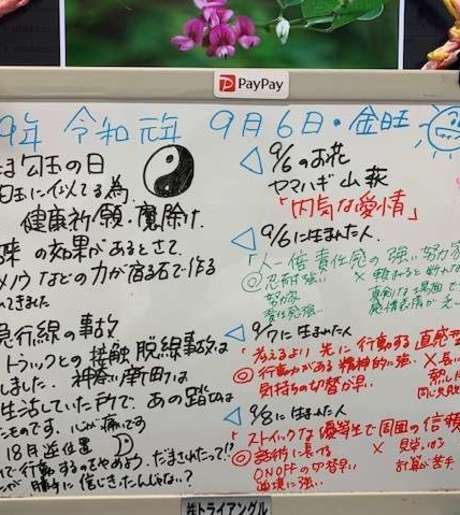 PayPay
9年 令和元年 9月6日・金旺
ま勾玉の日
玉に似てる為、
健康祈願・魔除け、
の効果があるとさて、
メノウなどの力が宿る石で作る
いてきました
急行線の事故
トラックとの接触脱線事故は
しました。神奈川新町は
生活していた所で、あの踏切は
たものです。心が痛いです
18月逆位置
で行動するのをやめよう。だまされたって!?
が勝手に信じきたんじゃない?
9/6のお花
ヤマハギ 山萩
「内気な愛情」
9/6に生まれた人、
「人一倍責任感の強い努力家
◎忍耐強い
努力家
責任感強い
× 頼まれると断れな
真剣な場面で
感情表情が
9/7に生まれた人
「考えるより先に行動する直感型
◎行動力がある 精神的に強い
気持ちの切替が早い
× 長い
熱し
同じ失敗
9/8に生まれた人
「ストイックな優等生で周囲の信頼
◎芸術に長ける
ONOFFの切替早い
逆境に強い
× 見栄はる
計算が苦手
㈱トライアングル